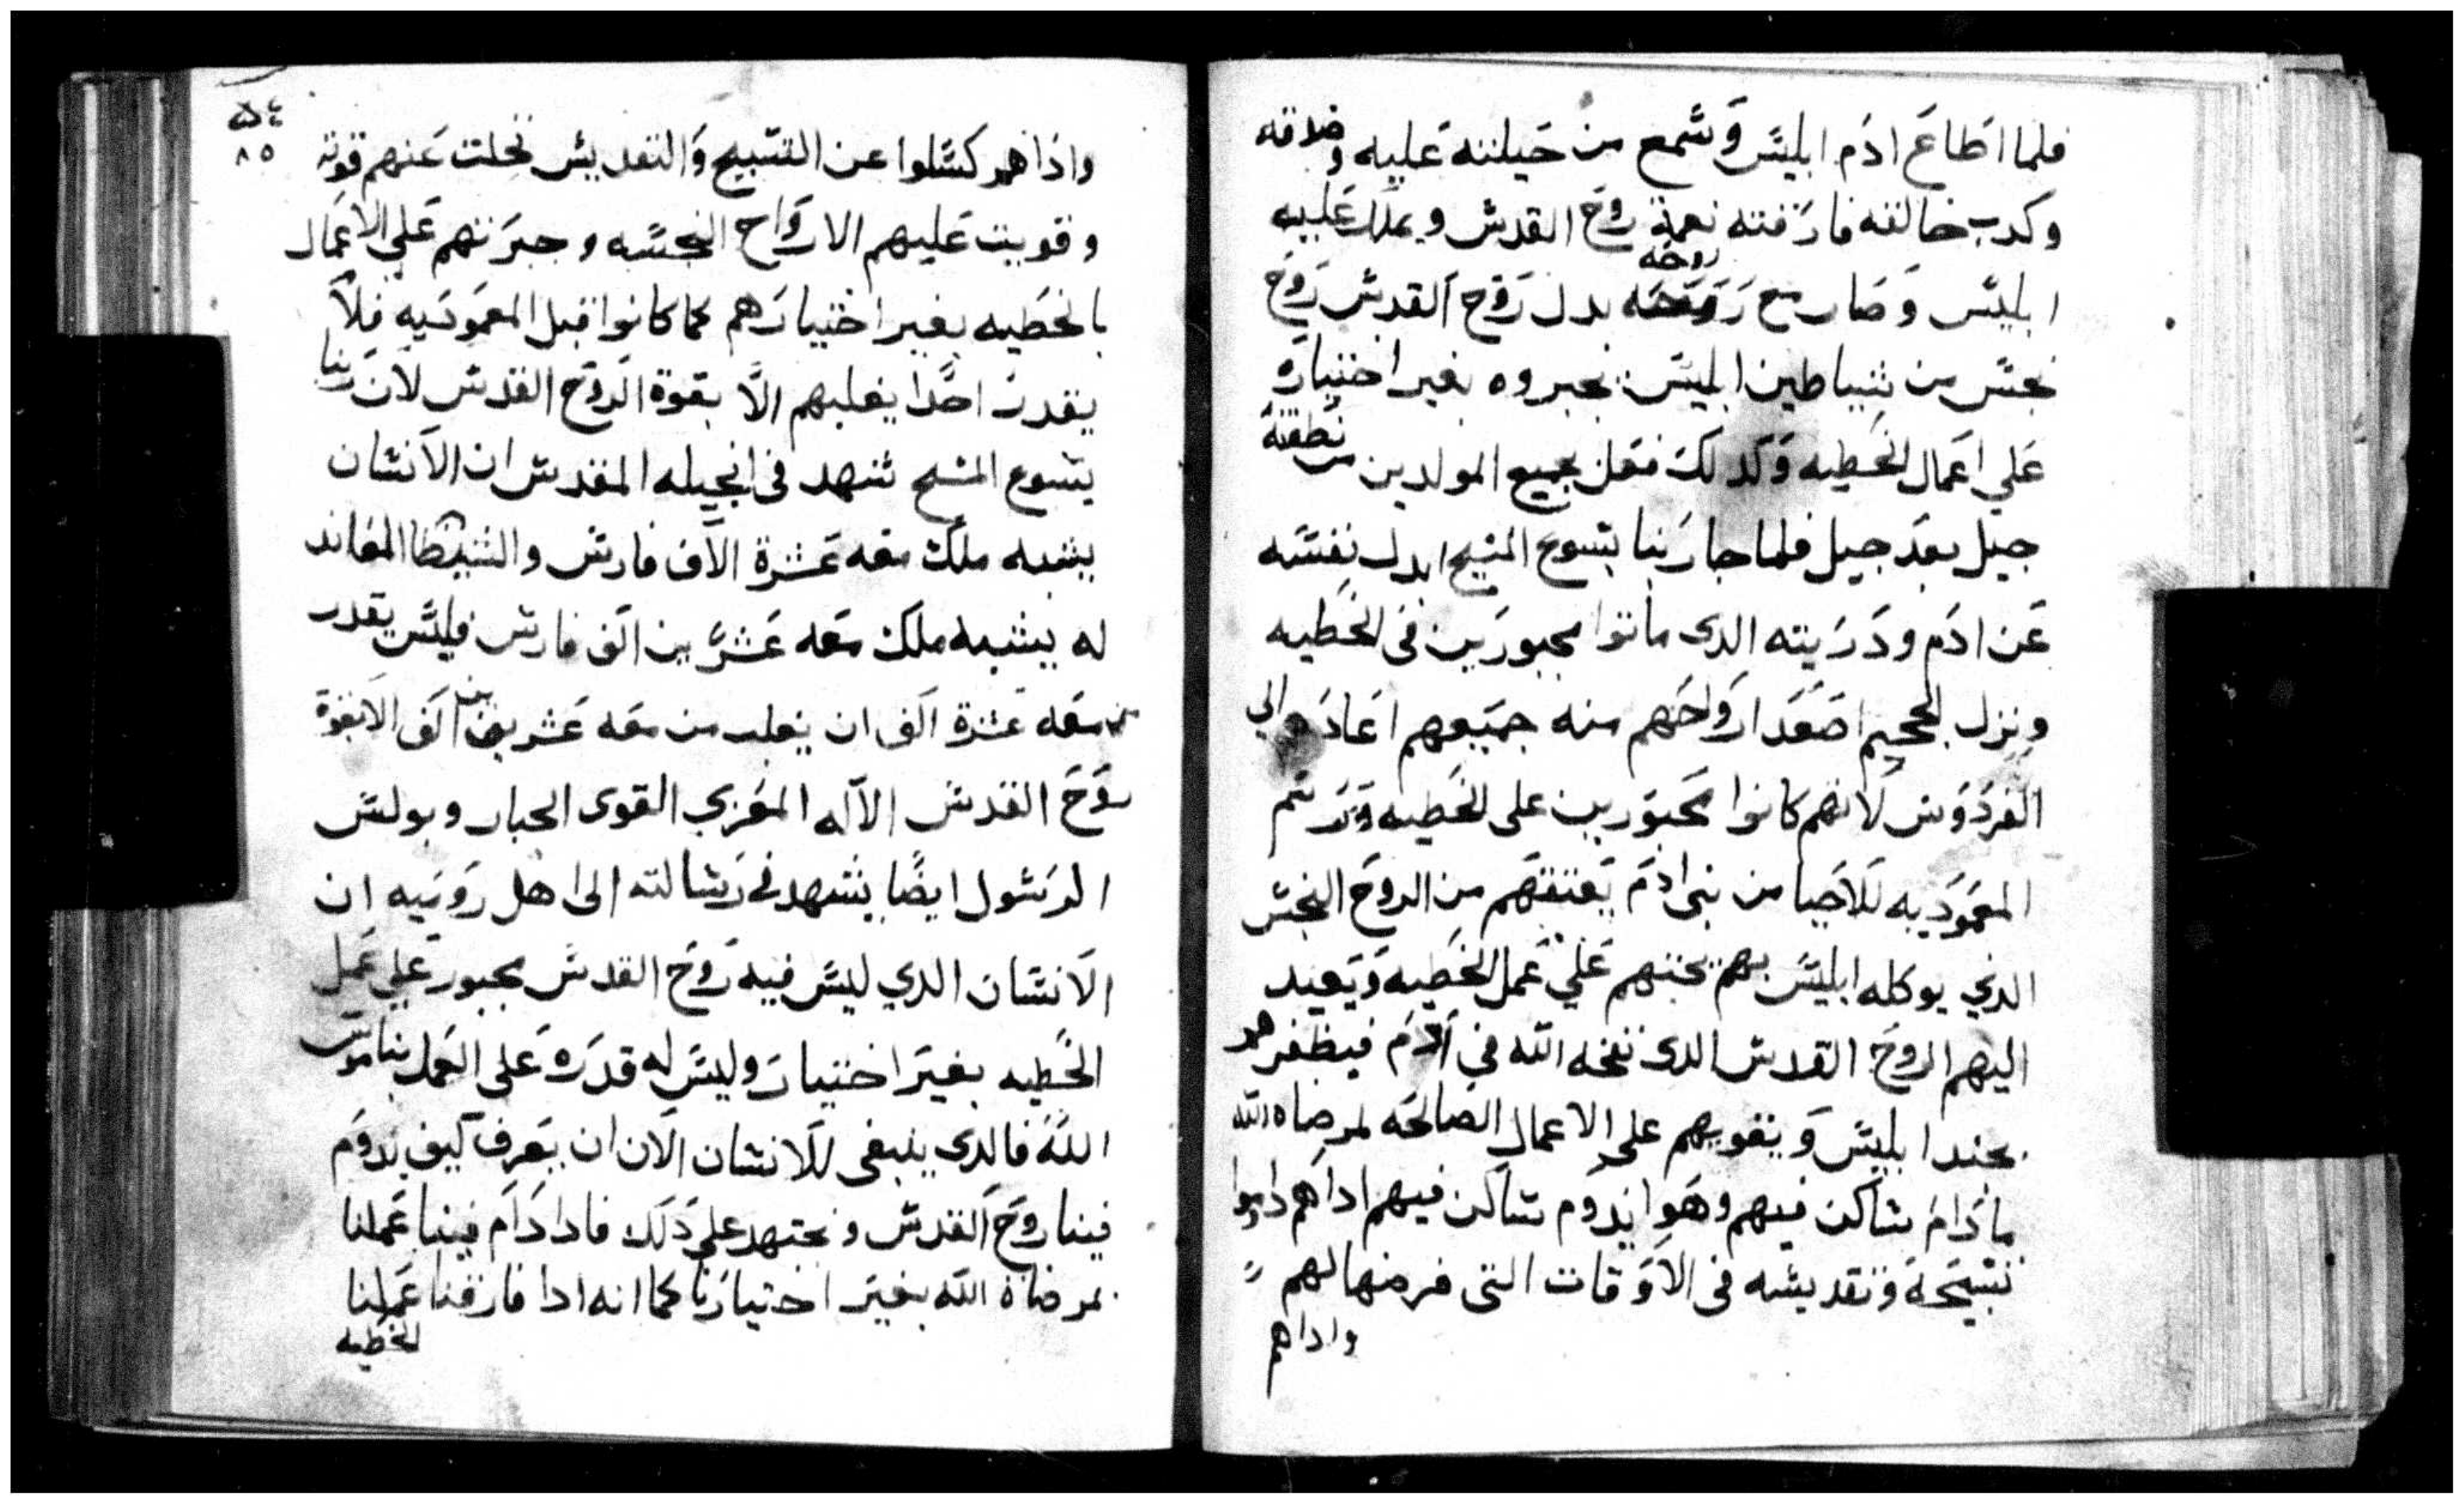 فلما اطاع ادم ابليس وسمع من حيلته عليه وصدقه
وكدب خالقه فارقته نعمة روح القدس وملك عليه
ابليس وصار مع روحه بدل روح القدس روح
نجس من شياطين ابليس يجبروه بغير اختياره
علي اعمال الخطيه وكدلك فعل بجميع المولدين من نطفته
جيل بعد جيل فلما جا ربنا يسوع المسيح ابدل نفسه
عن ادم ودريته الدى ماتوا مجبورين فى الخطيه
ونزل للجحيم اصعد ارواحهم منه جميعهم اعادهم الي
الفردوس لانهم كانوا مجبورين على الخطيه ورسم
المعموديه للاحيا من بنى ادم يعتقهم من الروح النجس
الدي يوكله ابليس بهم يحتهم علي عمل الخطيه ويعيد
اليهم الروح القدس الدى نفخه الله في ادم فيظفرهم
بجند ابليس ويقويهم على الاعمال الصالحه لمرضاه الله
مادام ساكن فيهم وهوا يدوم ساكن فيهم اداهم داموا
تسبيحة وتقديسه فى الاوقات التى فرضها لهم
واداهم
٨٥
واذاهم كسلوا عن التسبيح والتقديس تخلت عنهم قوته
وقويت عليهم الارواح النجسه وجبرتهم علي الاعمال
بالخطيه بغير اختيارهم كما كانوا قبل المعموديه فلا
يقدر احدا يغلبهم الا بقوة الروح القدس لان ربنا
يسوع المسيح شهد فى انجيله المقدس ان الانسان
يشبه ملك معه عشرة الاف فارس والشيطا المعاند
له يشبه ملك معه عشرين الف فارس فليس يقدر
من معه عشرة الف ان يغلب من معه عشرين الف الا بقوة
روح القدس الاله المعزي القوى الجبار وبولس
الرسول ايضا يشهد في رسالته الى اهل روميه ان
الانسان الدي ليس فيه روح القدس مجبور علي عمل
الخطيه بغير اختيار وليس له قدره على العمل بناموس
الله فالدى ينبغى للانسان الان ان يعرف كيف يدوم
فينا روح القدس ونجتهد على دلك فادا دام فينا عملنا
بمرضاة الله بغير اختيارنا كما انه ادا فارقنا عملنا
الخطيه